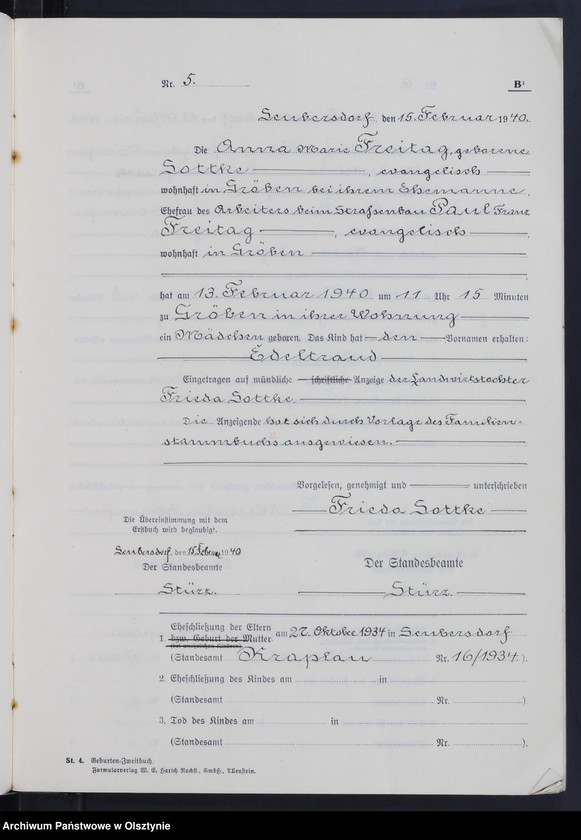 Nr. 5. B¹
Seubersdorf, den 15. Februar 1940.
Die Anna Marie Freitag, geborene
Sottke, evangelisch
wohnhaft in Gröben bei ihrem Ehemanne,
Ehefrau des Arbeiters beim Strassenbau Paul Franz
Freitag, evangelisch,
wohnhaft in Gröben
hat am 13. Februar 1940 um 11 Uhr 15 Minuten
zu Gröben in ihrer Wohnung
ein Mädchen geboren. Das Kind hat den Vornamen erhalten:
Edeltraud
Eingetragen auf mündliche schriftliche Anzeige der Landwirtstochter
Frieda Sottke
Die Anzeigende hat sich durch Vorlage des Familien-
stammbuchs ausgewiesen.
Vorgelesen, genehmigt und unterschrieben
Frieda Sottke
Die Übereinstimmung mit dem
Erstbuch wird beglaubigt.
Seubersdorf, den 15. Februar 1940
Der Standesbeamte
Stürz.
Der Standesbeamte
Stürz.
1. Eheschließung der Eltern
bzw. Geburt der Mutter
am 27. Oktober 1934 in Seubersdorf
(Standesamt Kraplau Nr. 16/1934).
2. Eheschließung des Kindes am in
(Standesamt Nr. )
3. Tod des Kindes am in
(Standesamt Nr. ).
St. 4. Geburten-Zweitbuch.
Formularverlag W. E. Harich Nachfl., GmbH., Allenstein.
Archiwum Państwowe w Olsztynie